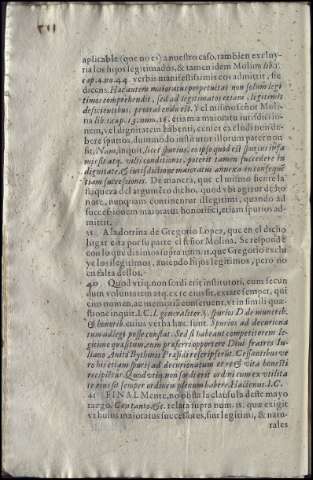 aplicable (que no es) a nuestro caso, tambien exclui-
ria los hijos legitimados, & tamen idem Molina lib. 3.
cap. 3. nu. 44. verbis manifestissimis eos admittit, sic
dicens. Hac autem maioratus perpetuitas non solum legi
timos comprehendit, sed ad legitimatos etiam, legitimis
deficientibus, protrahenda erit. Y el mismo señor Moli-
na
etiam a maioratu iurisdictio-
nem, vel dignitatem habenti, censet excludendos
bere spurios, dummodo instituror illorum pater non
sit. Nam, inquit, licet spurius, ex ipso quod est spurius infa
mis sit atq. vilis conditionis, poterit tamen succedere in
dignitate, & iurisdictione maioratui annexa ex conseque
tia successionis. De manera, que el mismo siente la
flaqueza del argumeto dicho, quod vbi agitur de ho
nore, nunquam continentur illegitimi, quando ad
successionem maioratus honorifici, etiam spurios ad-
mittit.
A la dotrina de Gregorio Lopez, que en el dicho
lugar esta por su parte el señor Molina. Se responde
con lo que diximos supra num. que Gregorio exclu
ye los ilegitimos, auiendo hijos legitimos, pero no
en falta dellos.
40 Quod vtiq. non sordi erit institutori, cum secun
dum voluntatem atq. ex te eius sit, extare semper, qui
eius nomen, ac memoria conseruent. vt in simili quæ-
stione inquit I. C. l. generaliter §. spurios D. de muner. b.
& honorib. cuius verba hæc sunt. Spurios ad decurio-
tum adlegi posse constat. Sed si habeant competitorem le-
gitime quæsitum, eum præferri oportere Diui fratres Iu-
liano Auito Bythiniæ Præsidi rescripserut. Cessantibus ve
ro his etiam spurij ad decurionatum et re & vita honesta
recipietur. Quod vtiq. non sordi erit ordini cum ex vtilita
te eius sit semper ordinem plenum habere. Hactenus I. C.
41 FINAL Mente, no obsta la clausula deste mayo
razgo. Cum tanto &c. relata supra num. 11. que exigit
vt huius maioratus successores, sint legitimi, & natu-
rales